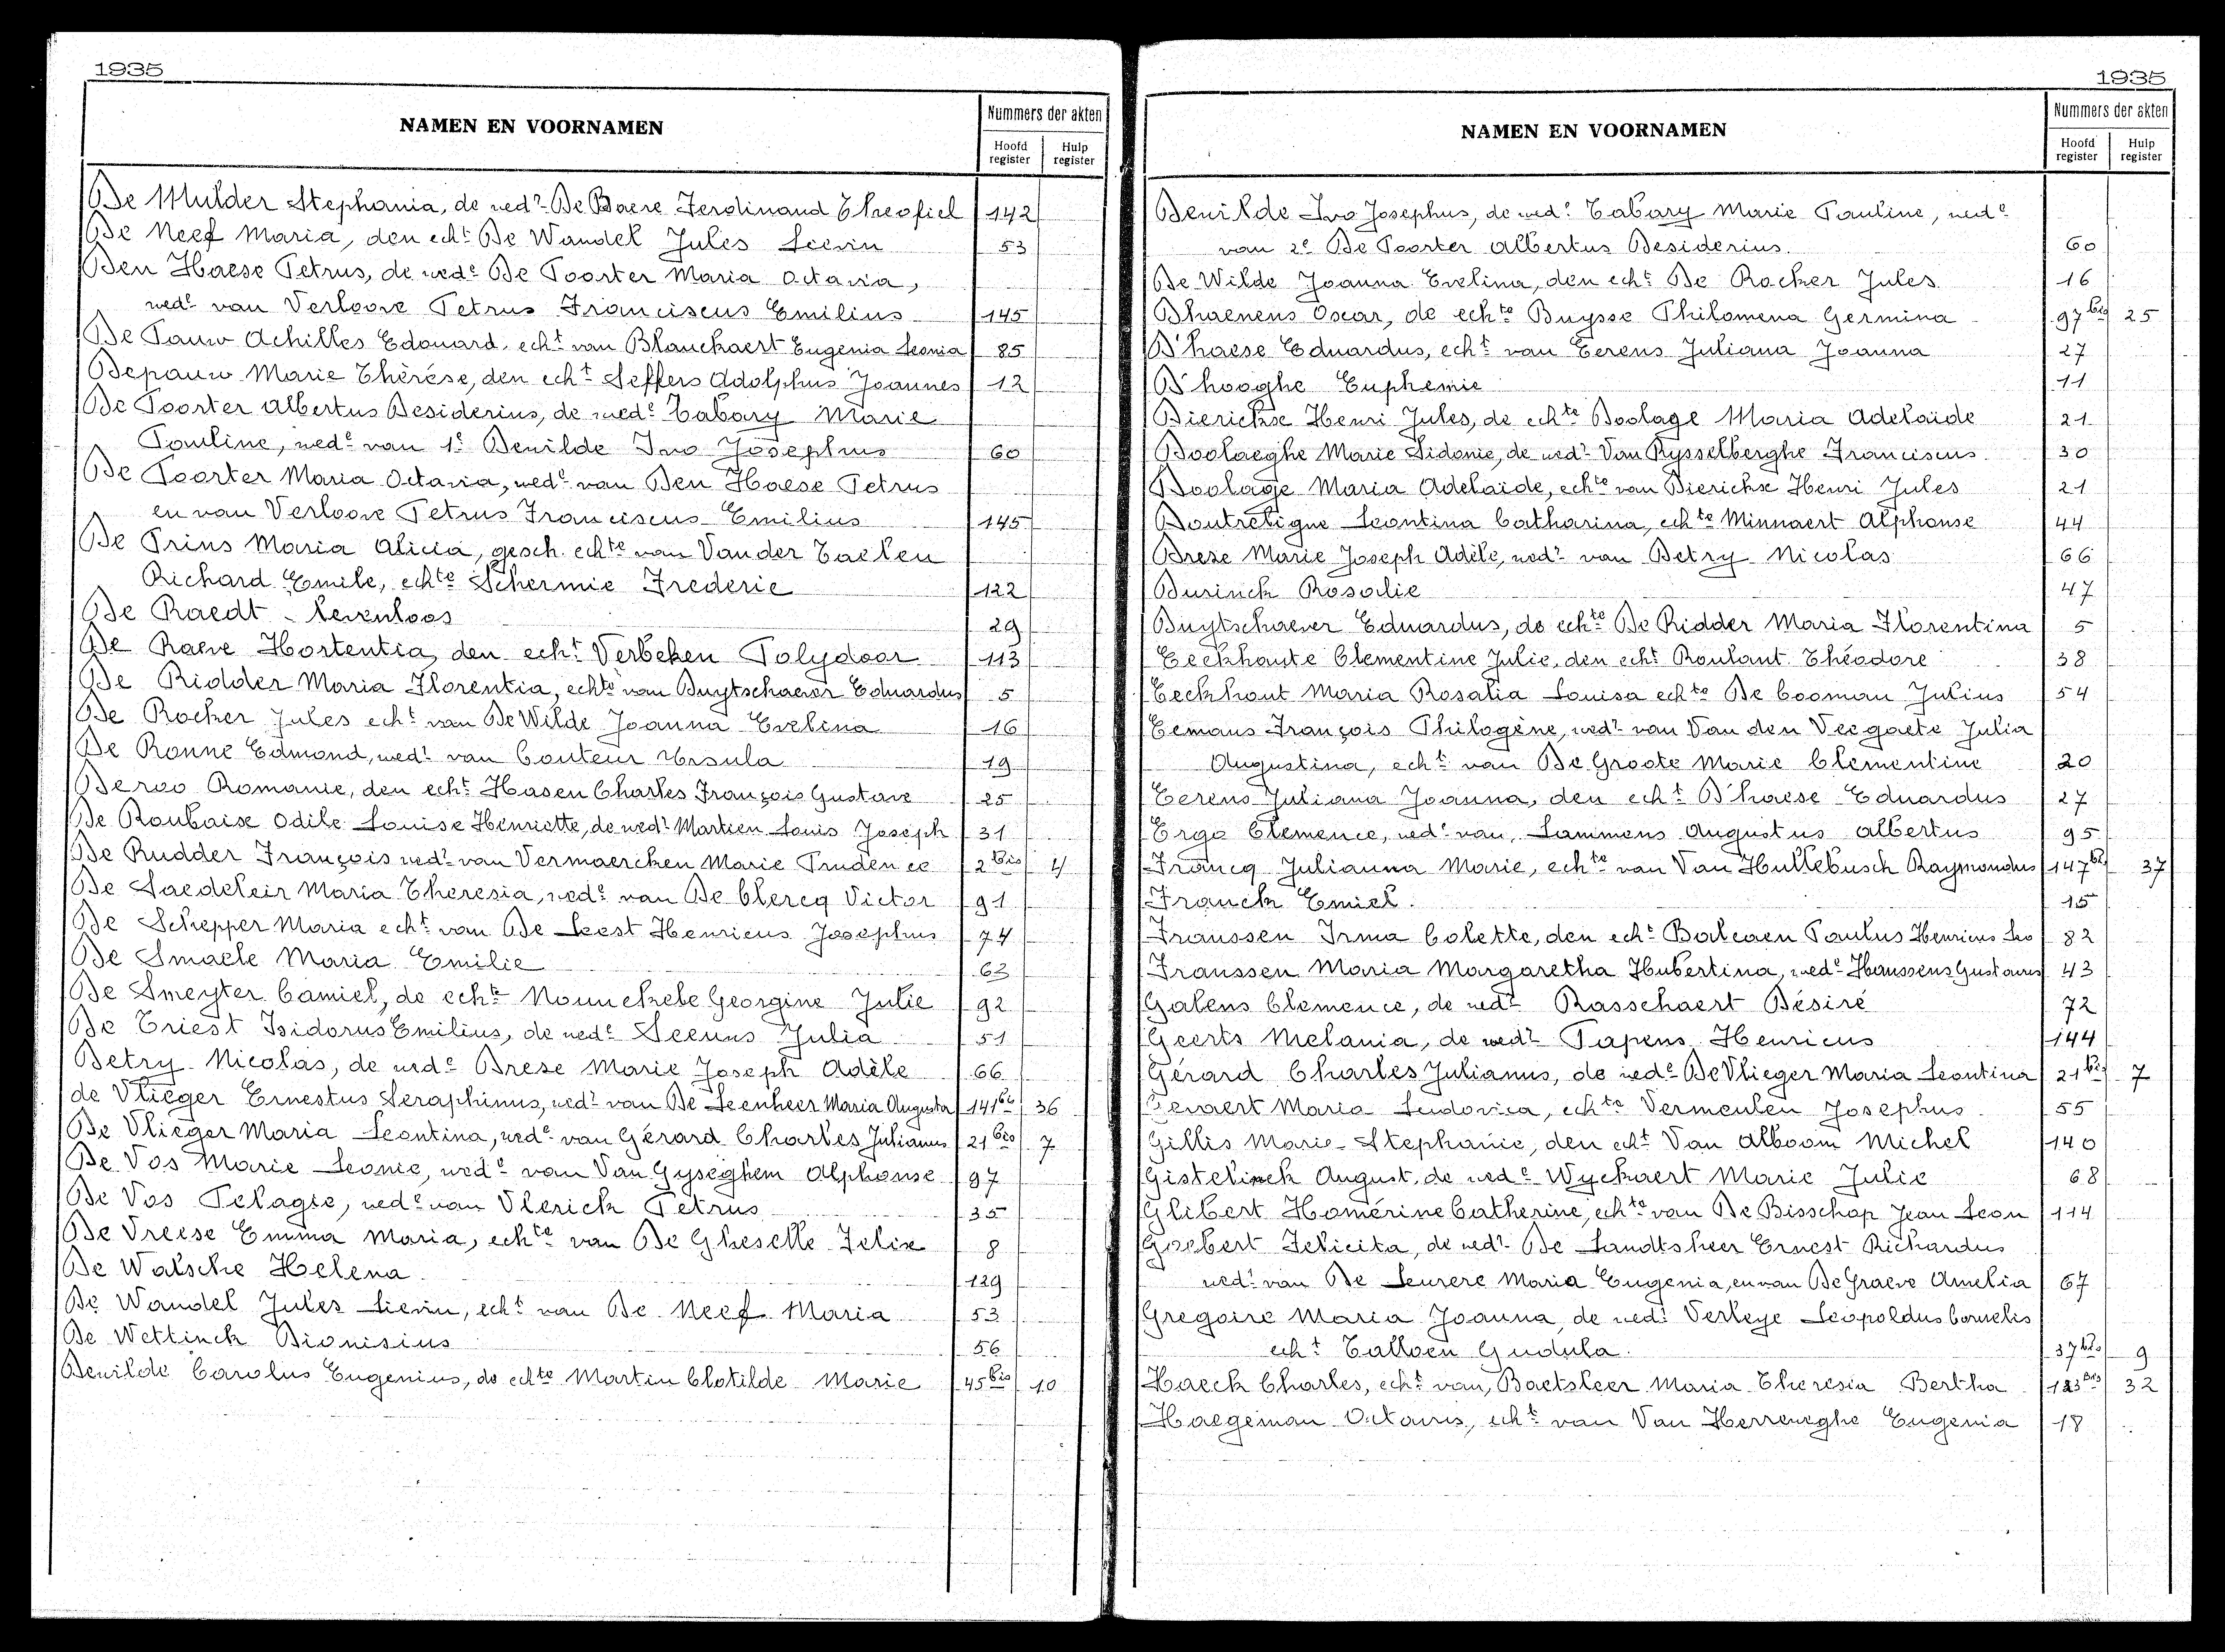 1935
NAMEN EN VOORNAMEN
Nummers der akten
Hoofd register
Hulp register
De Mulder Stephania, de wedr De Baere Ferdinand Theofiel 142
De Neef Maria, den echt De Wandel Jules Lievin 53
Den Haese Petrus, de wede De Poorter Maria Octavia,
wede van Verloove Petrus Franciscus Emilius 145
De Pauw Achilles Edouard echt van Blanckaert Eugenia Leonia 85
Depauw Marie Thérése, den echt Seffers Adolphus Joannes 12
De Poorter Albertus Desiderius, de wede Tabary Marie
Pauline, wede van 1e Dewilde Ivo Josephus 60
De Poorter Maria Octavia, wede van Den Haese Petrus
en van Verloove Petrus Franciscus Emilius 145
De Prins Maria Alicia, gesch. echte van Van der Taelen
Richard Emile, echte Schermie Frederic 122
De Raedt levenloos 29
De Raeve Hortentia, den echt Verbeken Polydoor 113
De Ridder Maria Florentia, echte van Duytschaever Eduardus 5
De Rocker Jules echt van De Wilde Joanna Evelina 16
De Ronne Edmond, wedr van Couteur Ursula 19
Deroo Romanie, den echt Hasen Charles François Gustave 25
De Roubaix Odile Louise Henriette, de wedr Martien Louis Joseph 31
De Rudder François wedr van Vermaercken Marie Prudence 2bis 4
De Saedeleir Maria Theresia, wede van De Clercq Victor 91
De Schepper Maria echt van De Leest Henricus Josephus 74
De Smaele Maria Emilie 63
De Smeyter Camiel, de echte Nounckele Georgine Julie 92
De Triest Isidorus Emilius, de wede Seeuws Julia 51
Detry Nicolas, de wede Dreze Marie Joseph Adèle 66
de Vlieger Ernestus Seraphinus, wedr van De Leenheer Maria Augusta 141bis 36
De Vlieger Maria Leontina, wede van Gérard Charles Julianus 21bis 7
De Vos Marie Leonie, wede van Van Gyseghem Alphonse 97
De Vos Pelagie, wede van Vlerick Petrus 35
De Vreese Emma Maria, echte van De Gheselle Felix 8
De Walsche Helena 129
De Wandel Jules Lievin, echt van De Neef Maria 53
De Wettinck Dionisius 56
Dewilde Carolus Eugenius, de echte Martin Clotilde Marie 45bis 10
1935
NAMEN EN VOORNAMEN
Nummers der akten
Hoofd register
Hulp register
Dewilde Ivo Josephus, de wede Tabary Marie Pauline, wede
van 2e De Poorter Albertus Desiderius. 60
De Wilde Joanna Evelina, den echt De Rocker Jules 16
Dhaenens Oscar, de echte Buysse Philomena Germina 97bis 25
D'haese Eduardus, echt van Eerens Juliana Joanna 27
D'hooghe Euphemie 11
Dierickx Henri Jules, de echte Doolage Maria Adelaïde 21
Doolaeghe Marie Sidonie, de wedr Van Rysselberghe Franciscus 30
Doolage Maria Adelaide, echte van Dierickx Henri Jules 21
Doutreligne Leontina Catharina, echte Minnaert Alphonse 44
Dreze Marie Joseph Adèle, wedr van Detry Nicolas 66
Dusinck Rosalie 47
Duytschaever Eduardus, de echte De Ridder Maria Florentina 5
Eeckhaute Clementine Julie, den echt Roulant Théodore 38
Eeckhout Maria Rosalia Louisa echte De Cooman Julius 54
Eemans François Philogène, wedr van Van den Veegaete Julia
Augustina, echt van De Groote Marie Clementine 20
Eerens Juliana Joanna, den echt D'haese Eduardus 27
Ergo Clemence, wede van Lammens Augustus Albertus 95
Francq Julianna Marie, echte van Van Hullebusch Raymondus 147bis 37
Franck Emiel. 15
Franssen Irma Colette, den echt Balcaen Paulus Henricus Leo 82
Franssen Maria Margaretha Hubertina, wede Hanssens Gustavus 43
Galens Clemence, de wedr Rasschaert Désiré 72
Geerts Melania, de wedr Papens Henricus 144
Gérard Charles Julianus, de wede De Vlieger Maria Leontina 21bis 7
Gevaert Maria Ludovica, echte Vermeulen Josephus. 55
Gillis Marie-Stephanie, den echt Van Alboom Michel 140
Gistelinck August, de wede Wyckaert Marie Julie 68
Glibert Homérine Catherine, echte van De Bisschop Jean Leon 114
Goebert Felicita, de wedr De Landtsheer Ernest Richardus
wedr van De Leurere Maria Eugenia, en van De Graeve Amelia 67
Gregoire Maria Joanna, de wedr Verleye Leopoldus Cornelis
echt Talloen Gudula. 37bis 9
Haeck Charles, echt van, Baetsleer Maria Theresia Bertha 123bis 32
Haegeman Octavus, echt van Van Herreweghe Eugenia 18